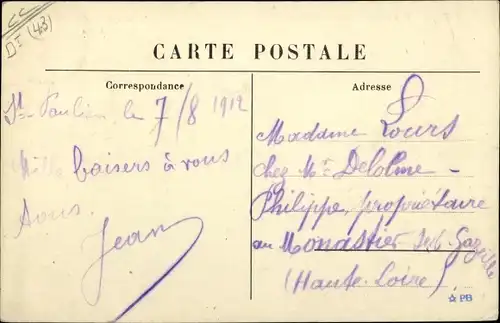 CC
DI (43)
CARTE POSTALE
Correspondance
Adresse
St-Paulien, le 7/8 1912
Mille baisers à vous
tous.
Jean
Madame Lours
chez Mr Delolme -
Philippe, propriétaire
au Monastier-sur-Gazeille
(Haute-Loire)
PB